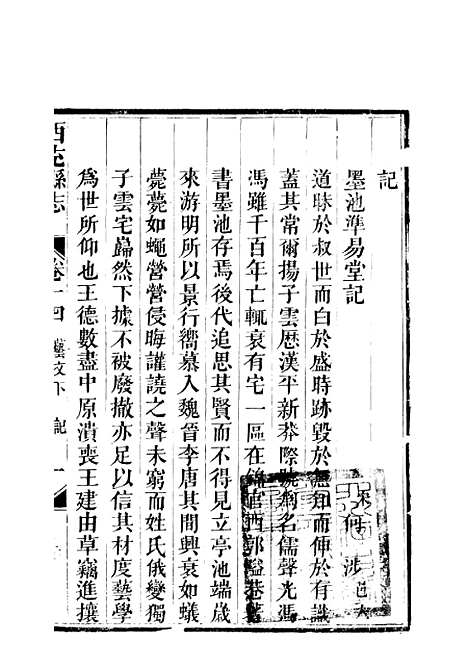 記
墨池準易堂記
何涉
道晦於叔世而白於盛時跡毀於無知而伸於有識
蓋其常爾揚子雲歷漢平新莽際號爲名儒聲光馮
馮雖千百年亡輒衰有宅一區在錦官西郭隘巷著
書墨池存焉後代追思其賢而不得見立亭池端歲
來游明所以景行嚮慕入魏晉李唐其間興衰如蟻
薨薨如蠅營營侵晦讙譊之聲未窮而姓氏俄變獨
子雲宅巋然下據不被廢撤亦足以信其材度藝學
爲世所仰也王德數盡中原潰喪王建由草竊進攘
西充縣志
卷十四 藝文下 記 一